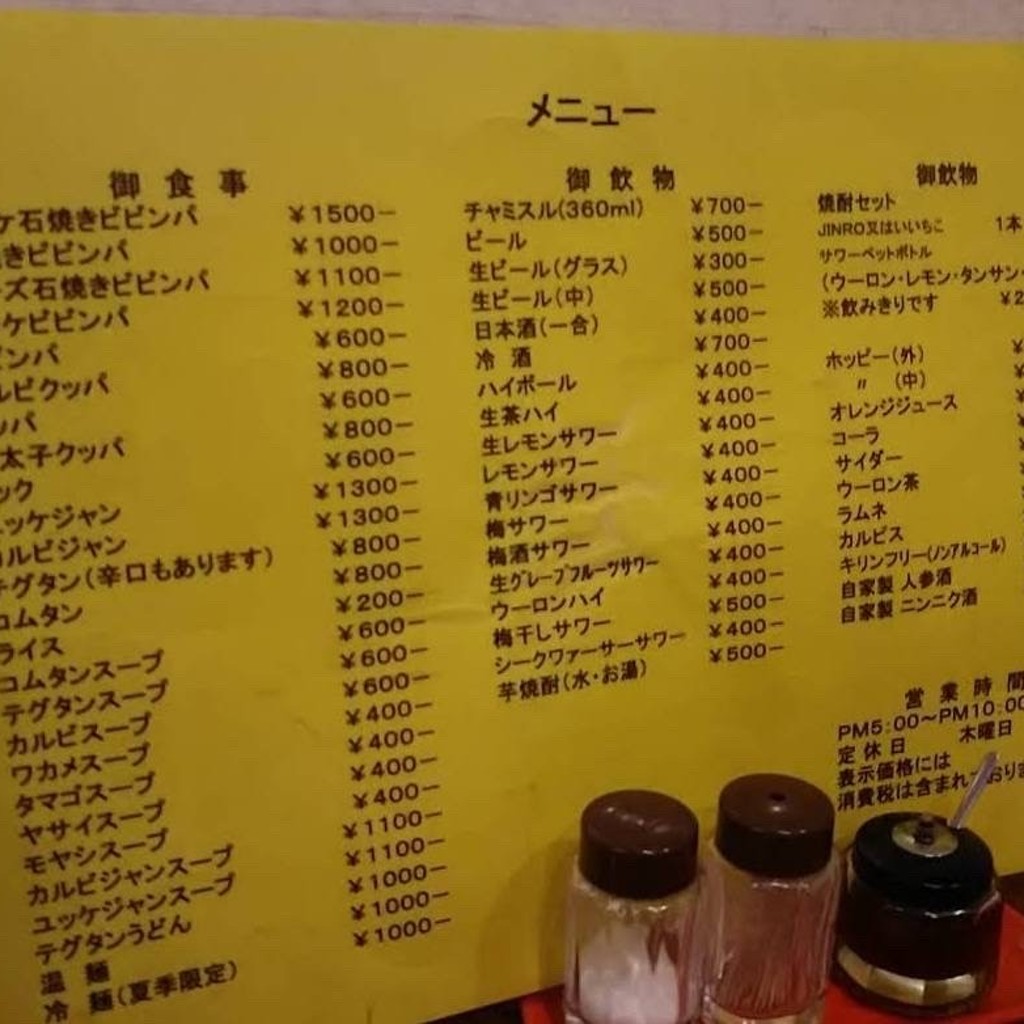 メニュー
御食事
ケ石焼きビビンバ ¥1500−
きビビンバ ¥1000−
ズ石焼きビビンバ ¥1100−
ケビビンバ ¥1200−
ンバ ¥600−
ルビクッパ ¥800−
ッパ ¥600−
太子クッパ ¥800−
ック ¥600−
ユッケジャン ¥1300−
カルビジャン ¥1300−
テグタン(辛口もあります) ¥800−
コムタン ¥800−
ライス ¥200−
コムタンスープ ¥600−
テグタンスープ ¥600−
カルビスープ ¥600−
ワカメスープ ¥400−
タマゴスープ ¥400−
ヤサイスープ ¥400−
モヤシスープ ¥400−
カルビジャンスープ ¥1100−
ユッケジャンスープ ¥1100−
テグタンうどん ¥1000−
温 麺 ¥1000−
冷 麺(夏季限定) ¥1000−
御飲物
チャミスル(360ml) ¥700−
ビール ¥500−
生ビール(グラス) ¥300−
生ビール(中) ¥500−
日本酒(一合) ¥400−
冷 酒 ¥700−
ハイボール ¥400−
生茶ハイ ¥400−
生レモンサワー ¥400−
レモンサワー ¥400−
青リンゴサワー ¥400−
梅サワー ¥400−
梅酒サワー ¥400−
生グレープフルーツサワー ¥400−
ウーロンハイ ¥400−
梅干しサワー ¥500−
シークワァーサーサワー ¥400−
芋焼酎(水・お湯) ¥500−
御飲物
焼酎セット
JINRO又はいいちこ 1本
サワーペットボトル
(ウーロン・レモン・タンサン
※飲みきりです ¥2
ホッピー(外) ¥
〃 (中) ¥
オレンジジュース
コーラ
サイダー
ウーロン茶
ラムネ
カルピス
キリンフリー(ノンアルコール)
自家製 人参酒
自家製 ニンニク酒
営業時間
PM5:00〜PM10:00
定休日 木曜日
表示価格には
消費税は含まれておりま